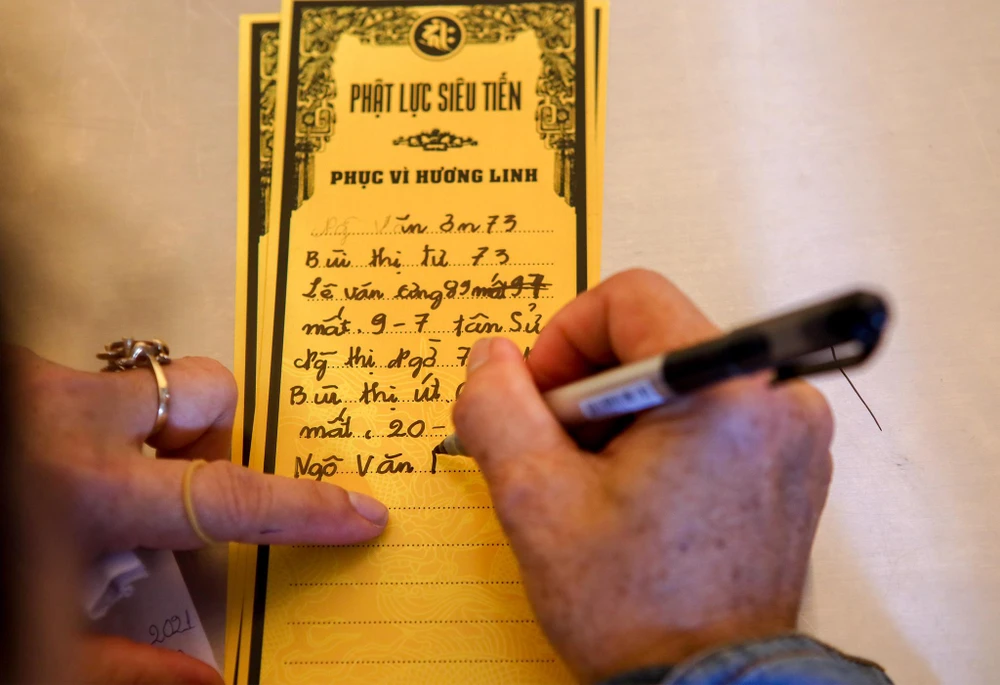 PHẬT LỰC SIÊU TIẾN
PHỤC VÌ HƯƠNG LINH
Văn ơn 73
Bùi thị tư 73
Lê văn công 89 mất 97
mất. 9-7 tân Sử
Ng̃ thị Ngỏ 7
Bùi thị út.
mất. 20-
Ngô Văn
2021